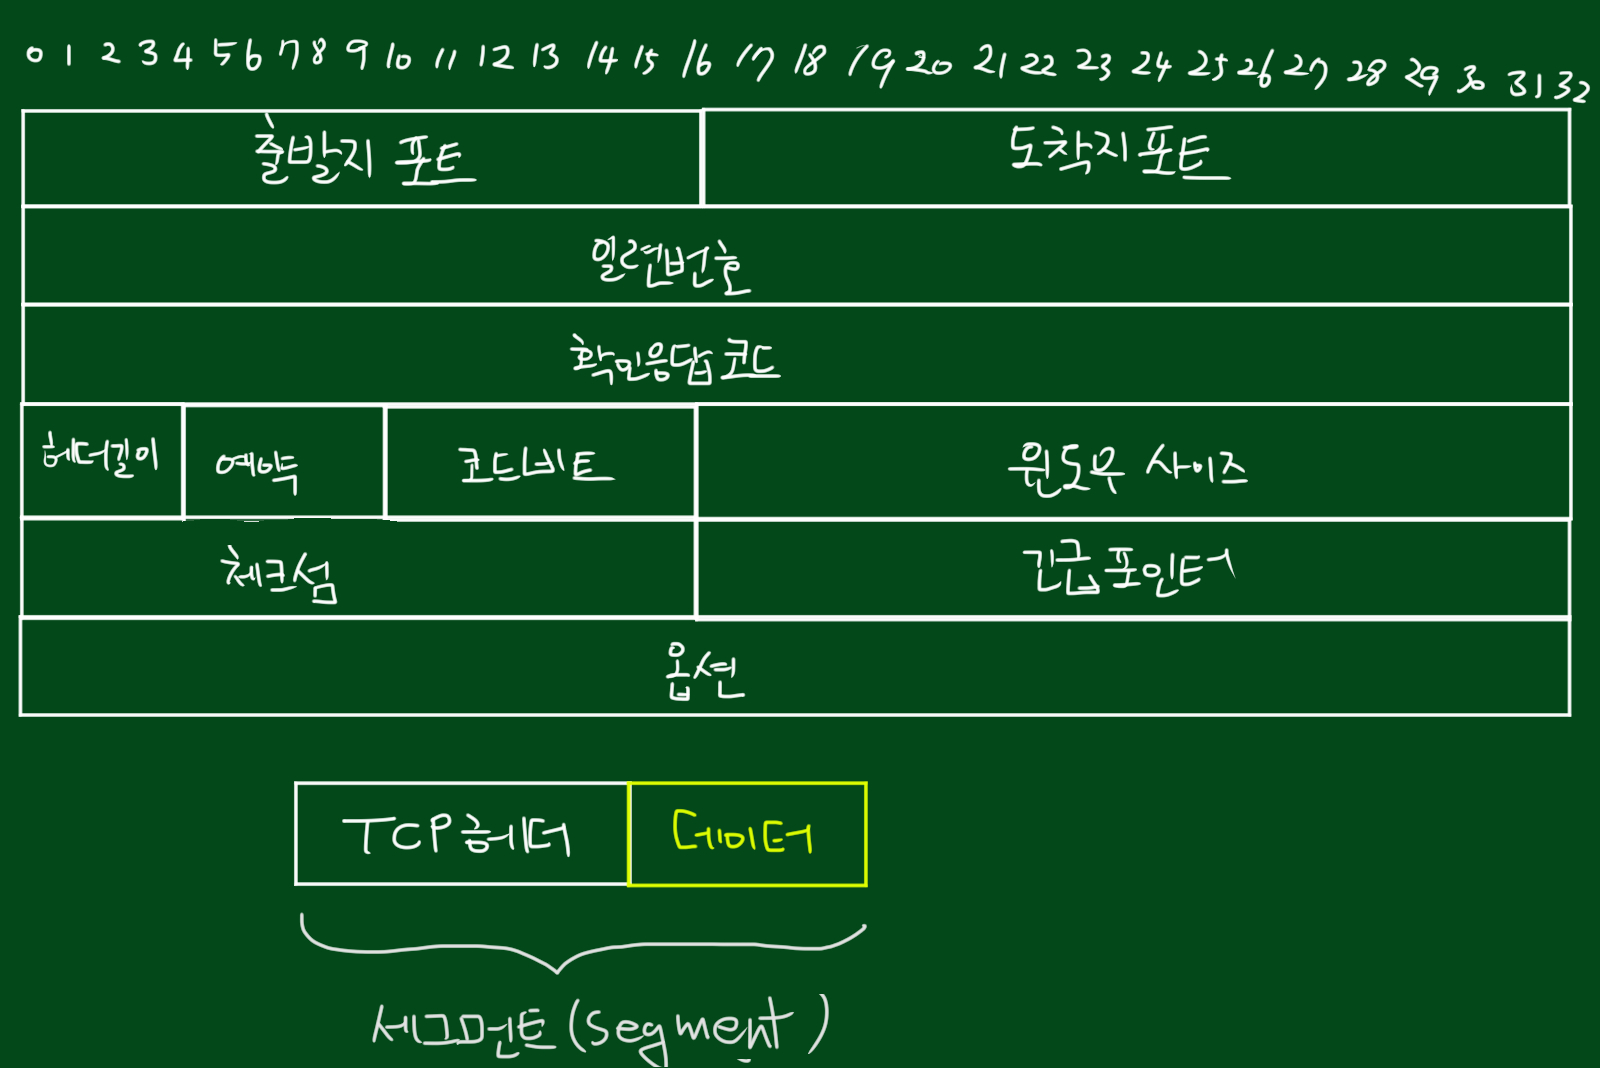 0 1 2 3 4 5 6 7 8 9 10 11 12 13 14 15 16 17 18 19 20 21 22 23 24 25 26 27 28 29 30 31 32
출발지 포트 도착지 포트
일련번호
확인응답 코드
헤더길이 예약 코드비트 윈도우 사이즈
체크섬 긴급 포인터
옵션
TCP 헤더 데이터
세그먼트 (segment)